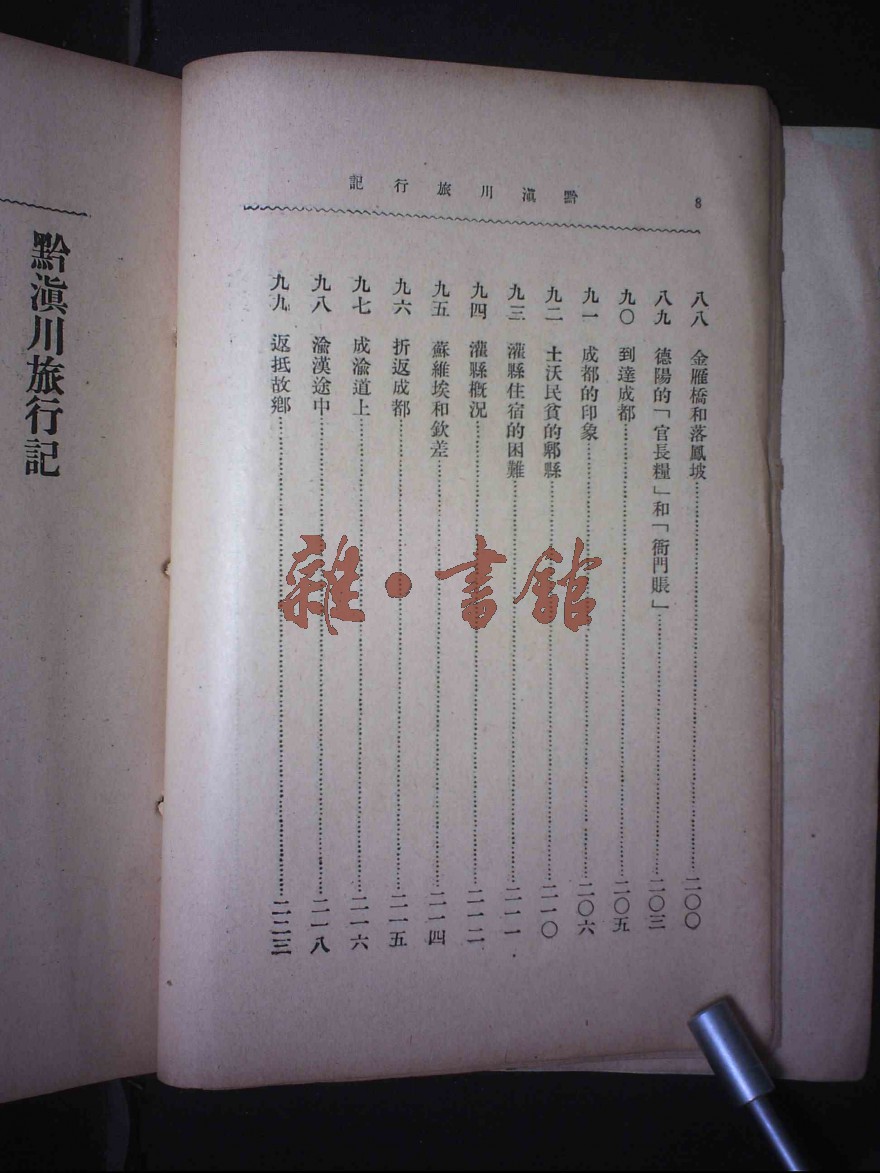 黔滇川旅行記
8
八八 金雁橋和落鳳坡……二〇〇
八九 德陽的「官長糧」和「衙門賬」……二〇三
九〇 到達成都……二〇五
九一 成都的印象……二〇六
九二 土沃民貧的郫縣……二一〇
九三 灌縣住宿的困難……二一一
九四 灌縣概況……二一二
九五 蘇維埃和欽差……二一四
九六 折返成都……二一五
九七 成渝道上……二一六
九八 渝漢途中……二一八
九九 返抵故鄉……二二三
黔滇川旅行記
雜·書館